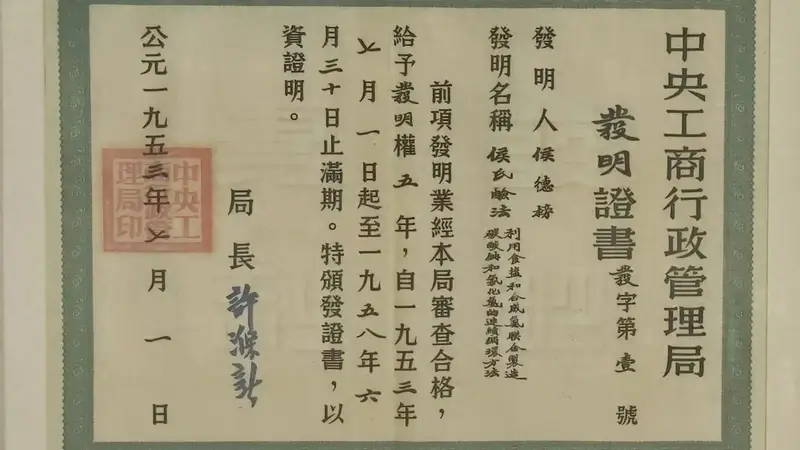 中央工商行政管理局
發明證書
發字第壹號
發明人侯德榜
發明名稱侯氏鹼法
利用食鹽和合成氨聯合製造
碳酸鈉和氯化銨的連續循環方法
前項發明業經本局審查合格，
給予發明權五年，自一九五三年
七月一日起至一九五八年六
月三十日止滿期。特頒發證書，以
資證明。
局長許滌新
公元一九五三年七月一日